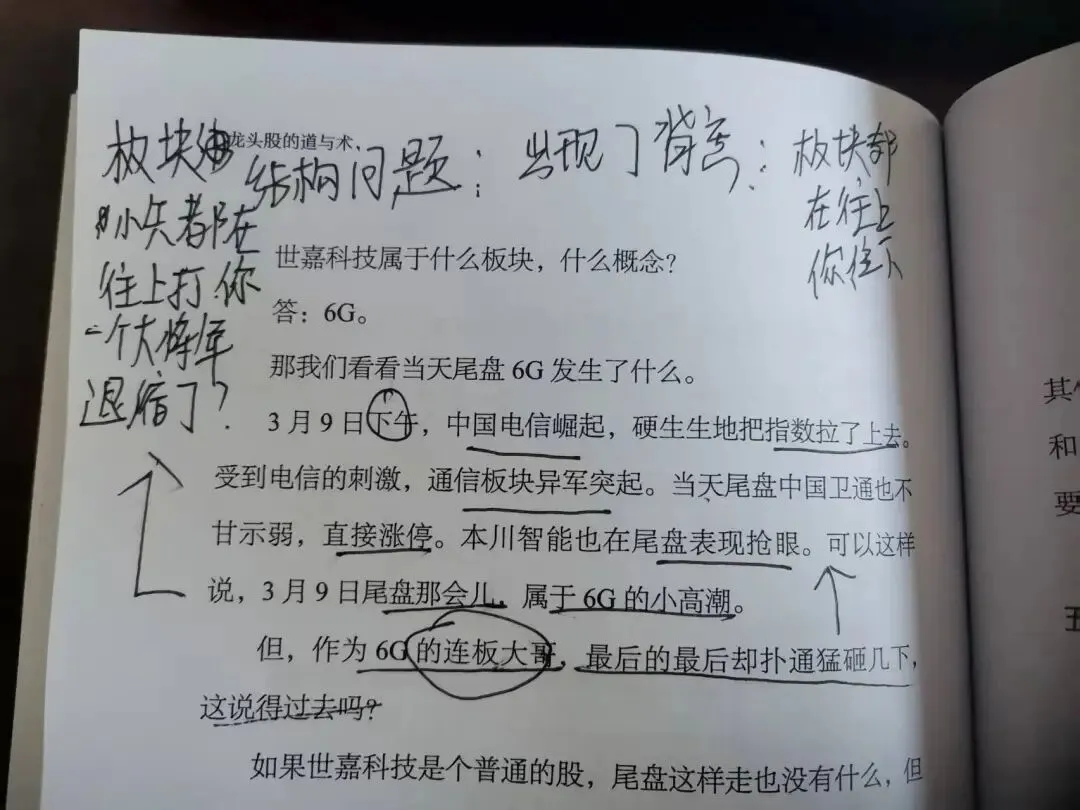 龙头股的道与术
结构问题; 出现了背离:
板块
小兵都在
往上打.你
一个大将军
退缩了?
板块都
在往上
你往下
世嘉科技属于什么板块，什么概念？
答：6G。
那我们看看当天尾盘 6G 发生了什么。
3 月 9 日下午，中国电信崛起，硬生生地把指数拉了上去。
受到电信的刺激，通信板块异军突起。当天尾盘中国卫通也不
甘示弱，直接涨停。本川智能也在尾盘表现抢眼。可以这样
说，3 月 9 日尾盘那会儿，属于 6G 的小高潮。
但，作为 6G 的连板大哥，最后的最后却扑通猛砸几下，
这说得过去吗？
如果世嘉科技是个普通的股，尾盘这样走也没有什么，但
其
和
要